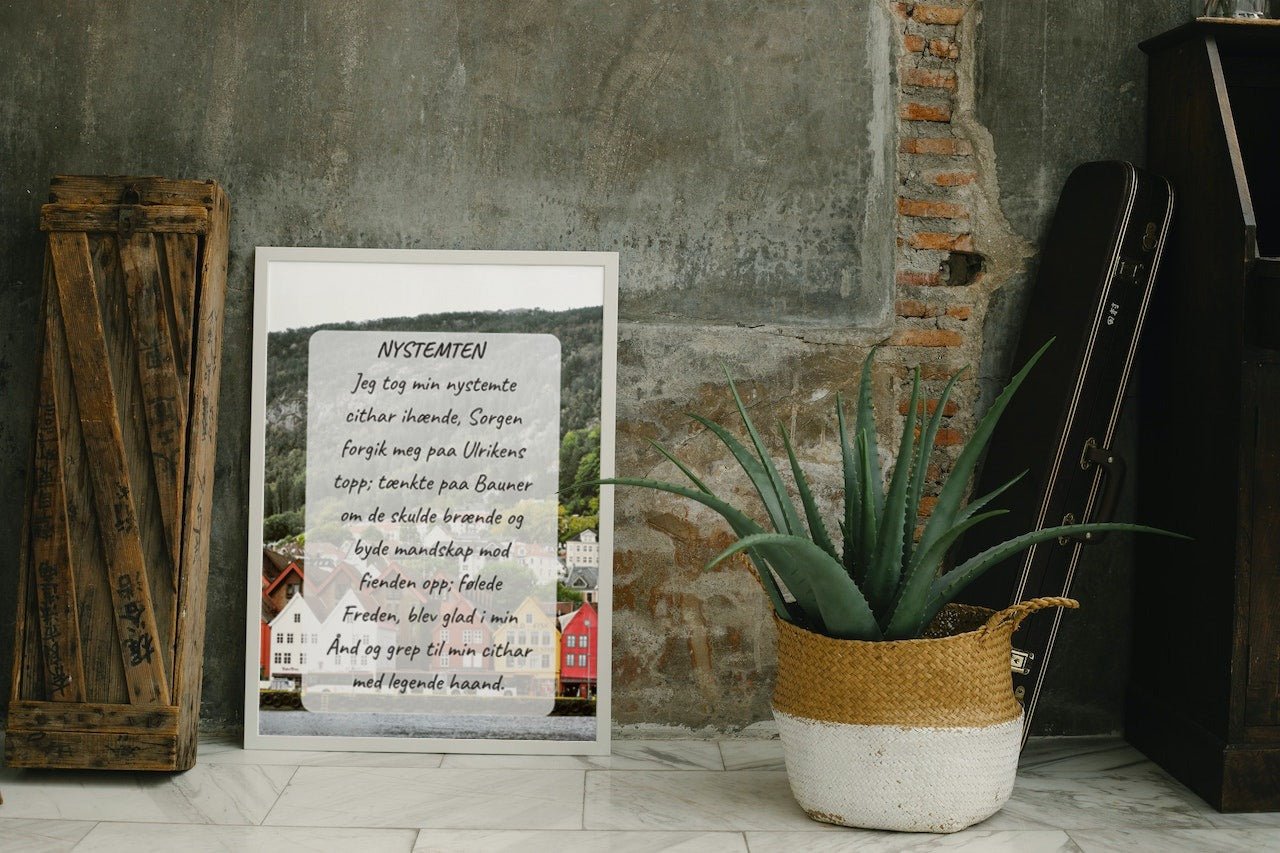 NYSTEMTEN
Jeg tog min nystemte
cithar ihænde, Sorgen
forgik meg paa Ulrikens
topp; tænkte paa Bauner
om de skulde brænde og
byde mandskap mod
fienden opp; følede
Freden, blev glad i min
Ånd og grep til min cithar
med legende haand.